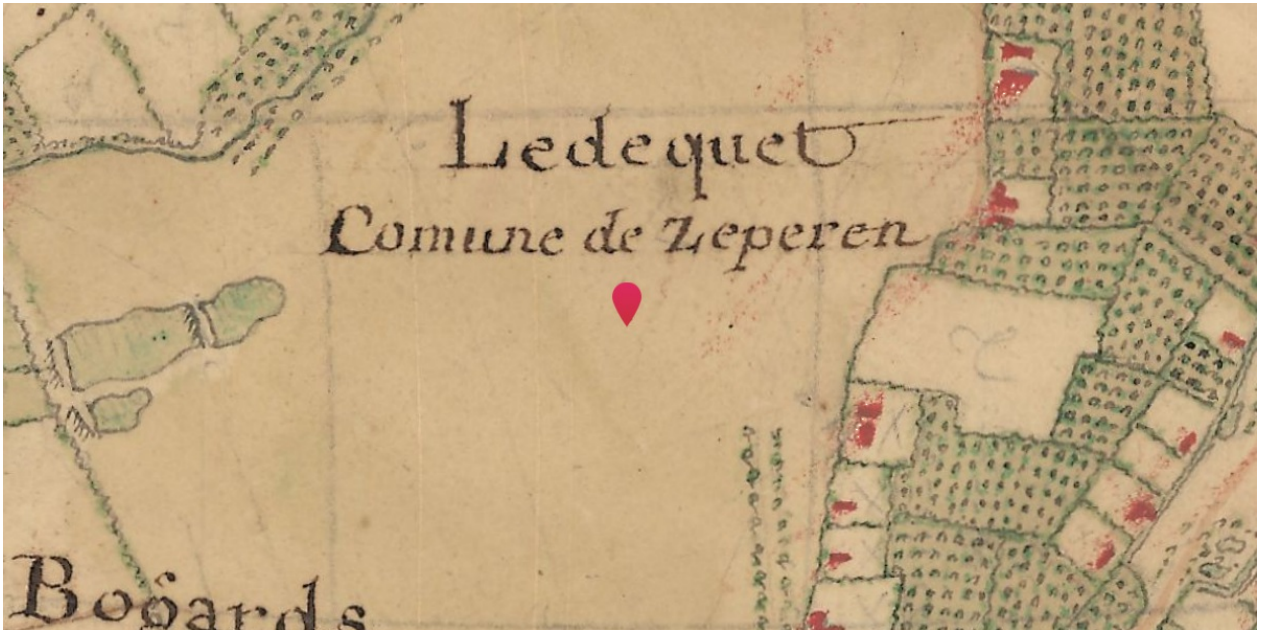 Ledequet
Comune de Zeperen
Bogards